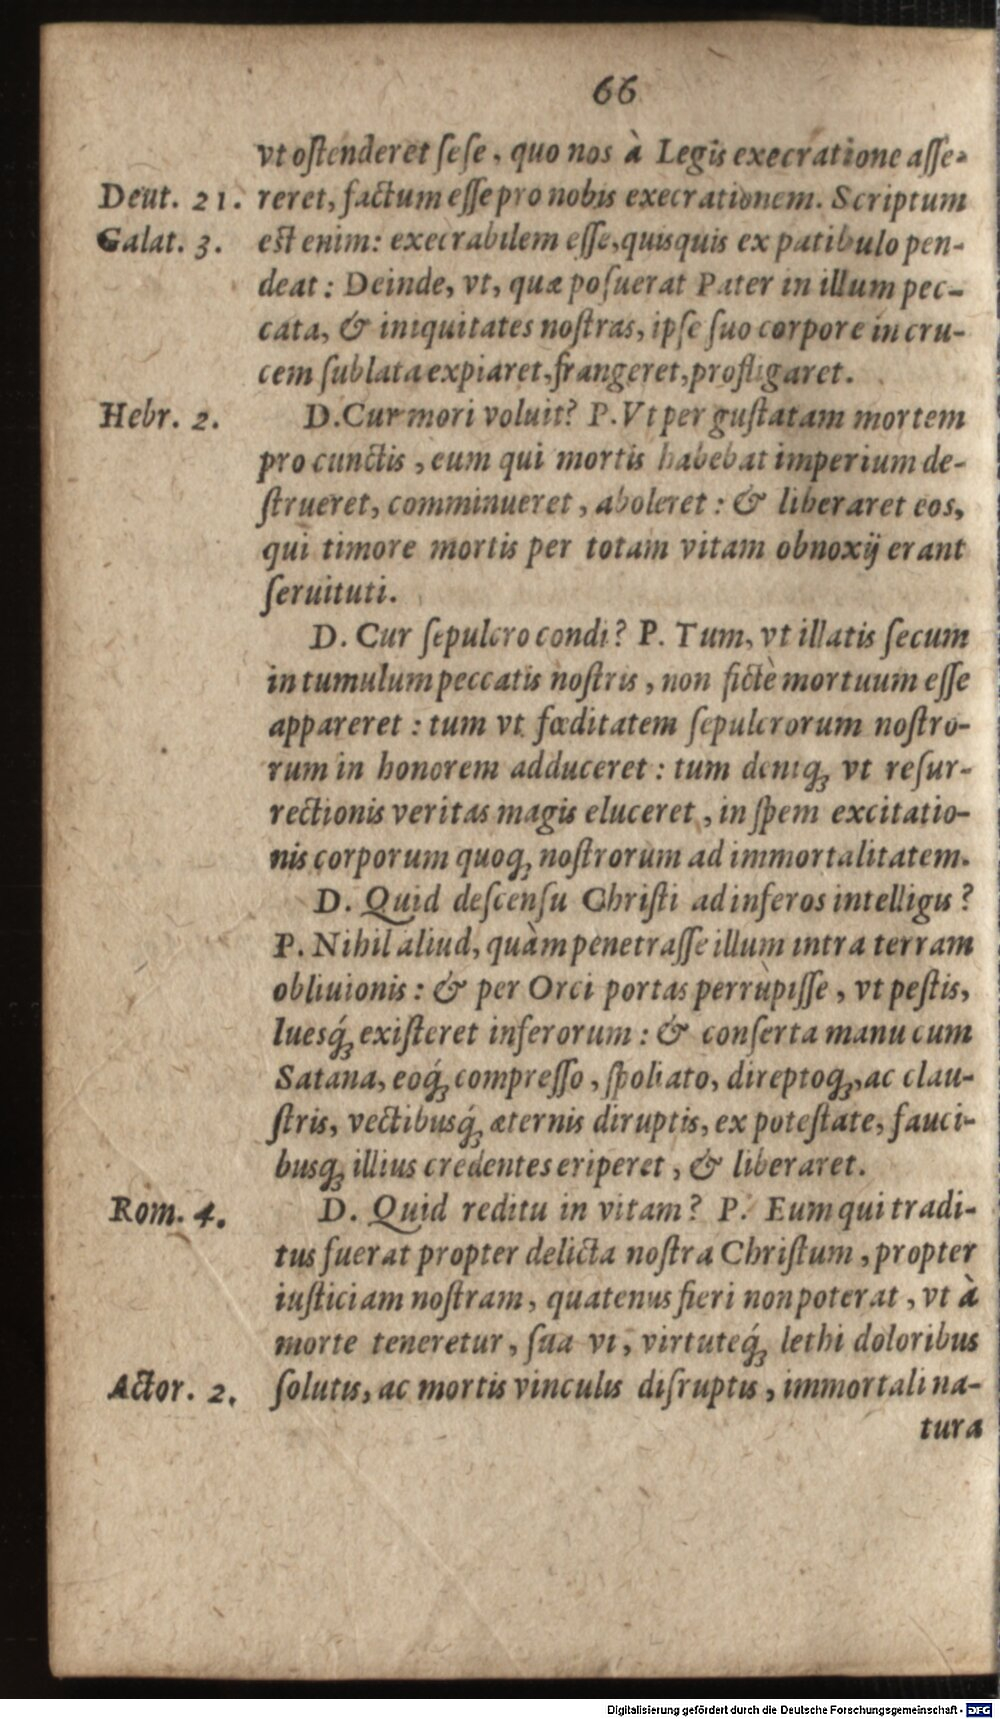 66
vt ostenderet sese, quo nos à Legis execratione asse-
Deut. 21. reret, factum esse pro nobis execrationem. Scriptum
Galat. 3. est enim: execrabilem esse, quisquis ex patibulo pen-
deat: Deinde, vt, quæ posuerat Pater in illum pec-
cata, & iniquitates nostras, ipse suo corpore in cru-
cem sublata expiaret, frangeret, profligaret.
Hebr. 2. D. Cur mori voluit? P. Vt per gustatam mortem
pro cunctis, eum qui mortis habebat imperium de-
strueret, comminueret, aboleret: & liberaret eos,
qui timore mortis per totam vitam obnoxij erant
seruituti.
D. Cur sepulcro condi? P. Tum, vt illatis secum
in tumulum peccatis nostris, non fictè mortuum esse
appareret: tum vt fœditatem sepulcrorum nostro-
rum in honorem adduceret: tum deniqꝫ vt resur-
rectionis veritas magis eluceret, in spem excitatio-
nis corporum quoqꝫ nostrorum ad immortalitatem.
D. Quid descensu Christi ad inferos intelligis?
P. Nihil aliud, quàm penetrasse illum intra terram
obliuionis: & per Orci portas perrùpisse, vt pestis,
luesq́ꝫ existeret inferorum: & conserta manu cum
Satana, eoq́ꝫ compresso, spoliato, direptoqꝫ, ac clau-
stris, vectibusq́ꝫ æternis diruptis, ex potestate, fauci-
busqꝫ illius credentes eriperet, & liberaret.
Rom. 4. D. Quid reditu in vitam? P. Eum qui tradi-
tus fuerat propter delicta nostra Christum, propter
iusticiam nostram, quatenus fieri non poterat, vt à
morte teneretur, sua vi, virtuteq́ꝫ lethi doloribus
Actor. 2. solutis, ac mortis vinculis disruptis, immortali na-
tura
Digitalisierung gefördert durch die Deutsche Forschungsgemeinschaft - DFG